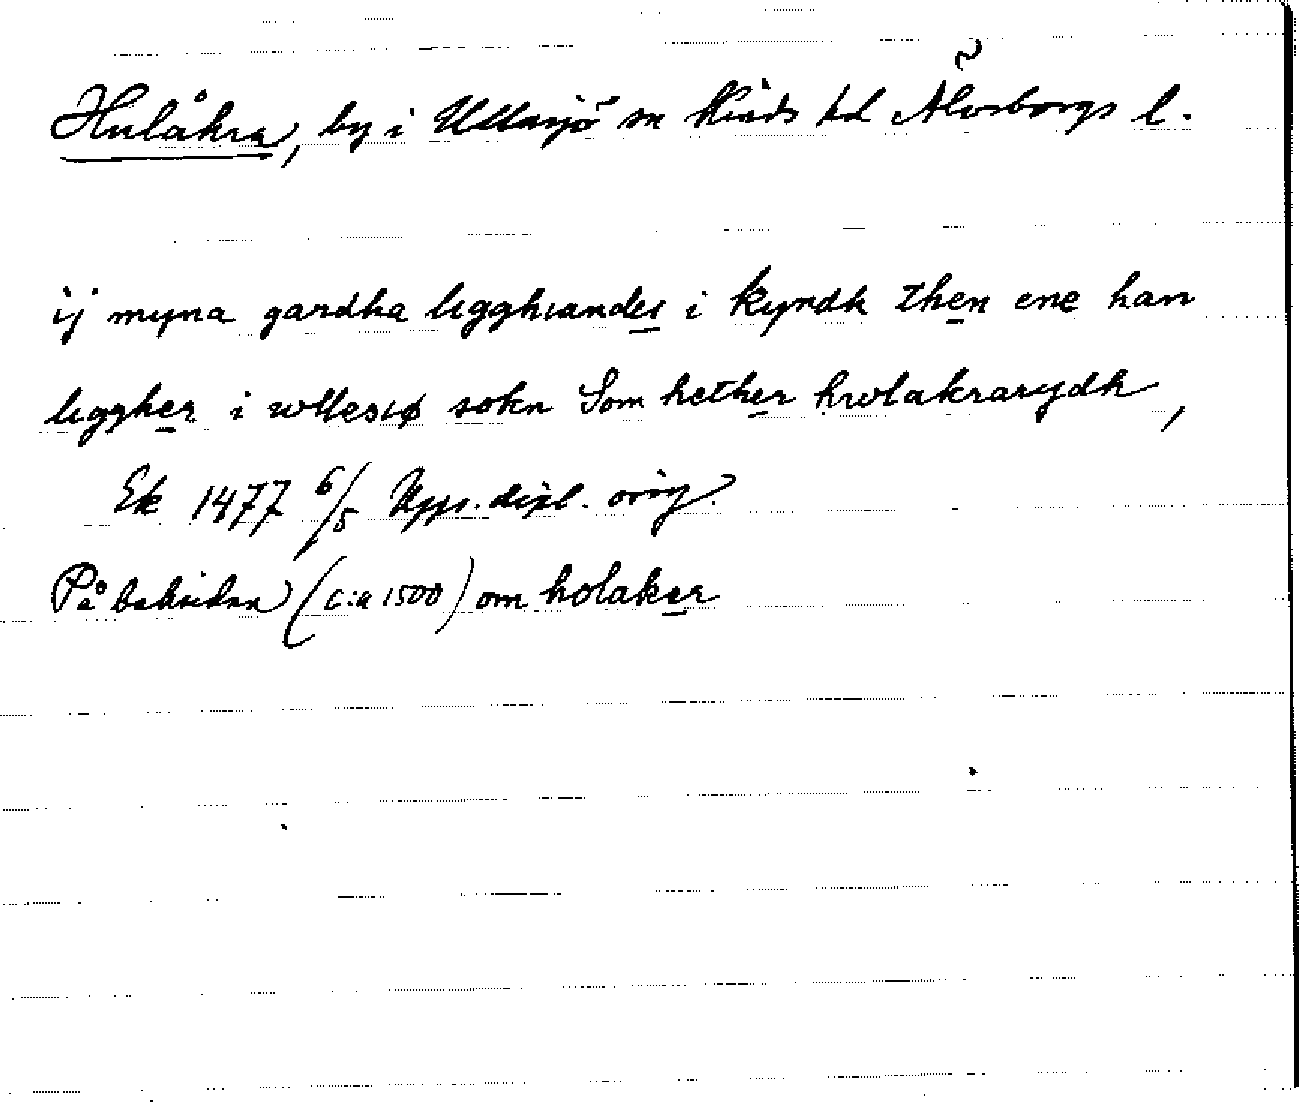 Hulåkra, by i Ullasjö sn Kinds hd Älvsborgs l.
ij myna gardha ligghiandes i kyndh then ene han
liggher i wllesiø sokn Som hether hwlakrarydh,
Ek 1477 6/5 Upps. dipl. orig.
På baksidan (c:a 1500) om holaker